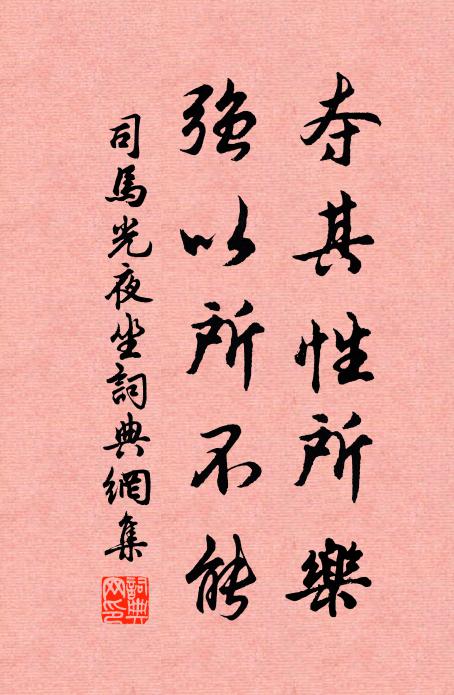 夺其性所樂
強以所不能
司馬光夜坐詞典網集
詞典
网印